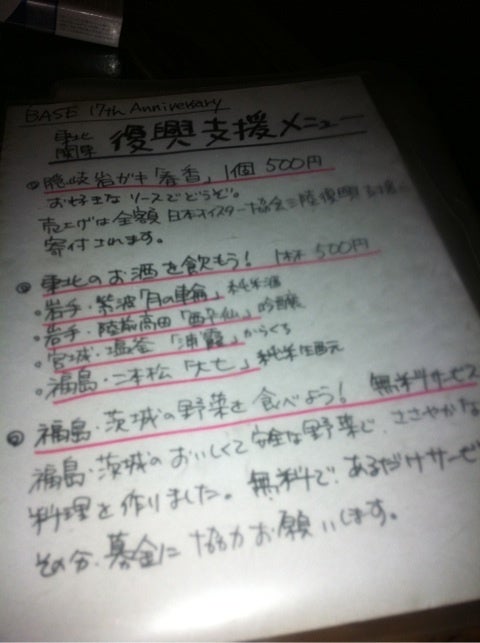 BASE 17th Anniversary
東北
関東 復興支援メニュー
隠岐岩がキ「春香」1個 500円
お好きな ソースでどうぞ。
売上げは全額 日本オイスター協会三陸復興支援へ
寄付されます。
東北のお酒を飲もう! 1杯 500円
・岩手・紫波「月の輪」純米酒
・岩手・陸前高田「酔仙」吟醸
・宮城・塩釜「浦霞」からくち
・福島・二本松「大七」純米生酛
福島・茨城の野菜を食べよう! 無料サービス
福島・茨城の おいしくて 安全な野菜で、ささやかな
料理を作りました。無料で、あるだけサービ
その分、募金に 協力お願いします。